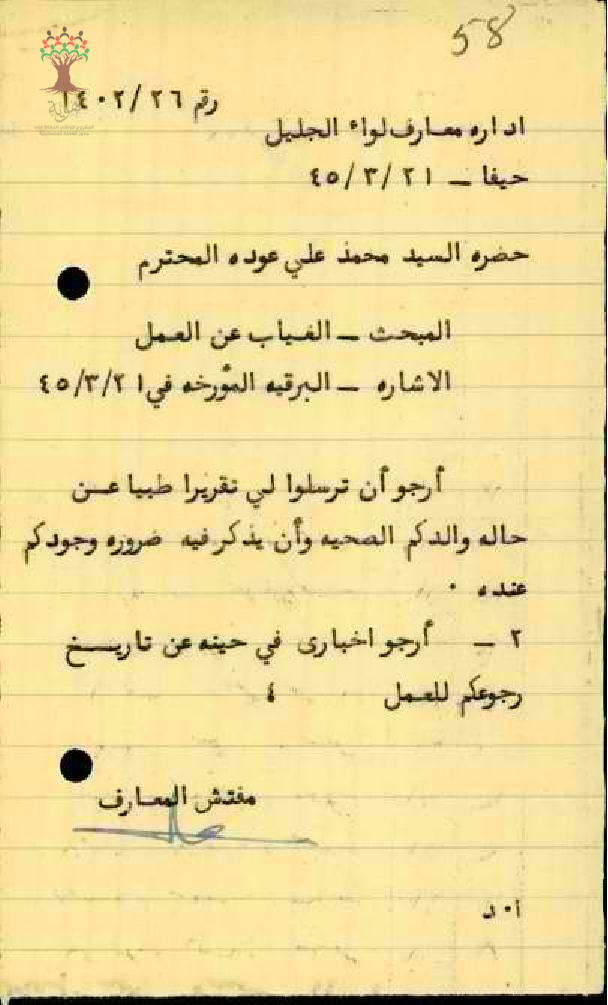 58
رقم ١٤٠٢/٢٦
اداره معارف لواء الجليل
حيفا – ٤٥/٣/٢١
حضره السيد محمد علي عوده المحترم
المبحث – الغياب عن العمل
الاشاره – البرقيه المؤرخه في ٤٥/٣/٢١
أرجو أن ترسلوا لي تقريرا طبيا عن
حاله والدكم الصحيه وأن يذكر فيه ضروره وجودكم
عنده ٠
٢ – أرجو اخبارى في حينه عن تاريخ
رجوعكم للعمل ٤
مفتش المعارف
أ٠ د